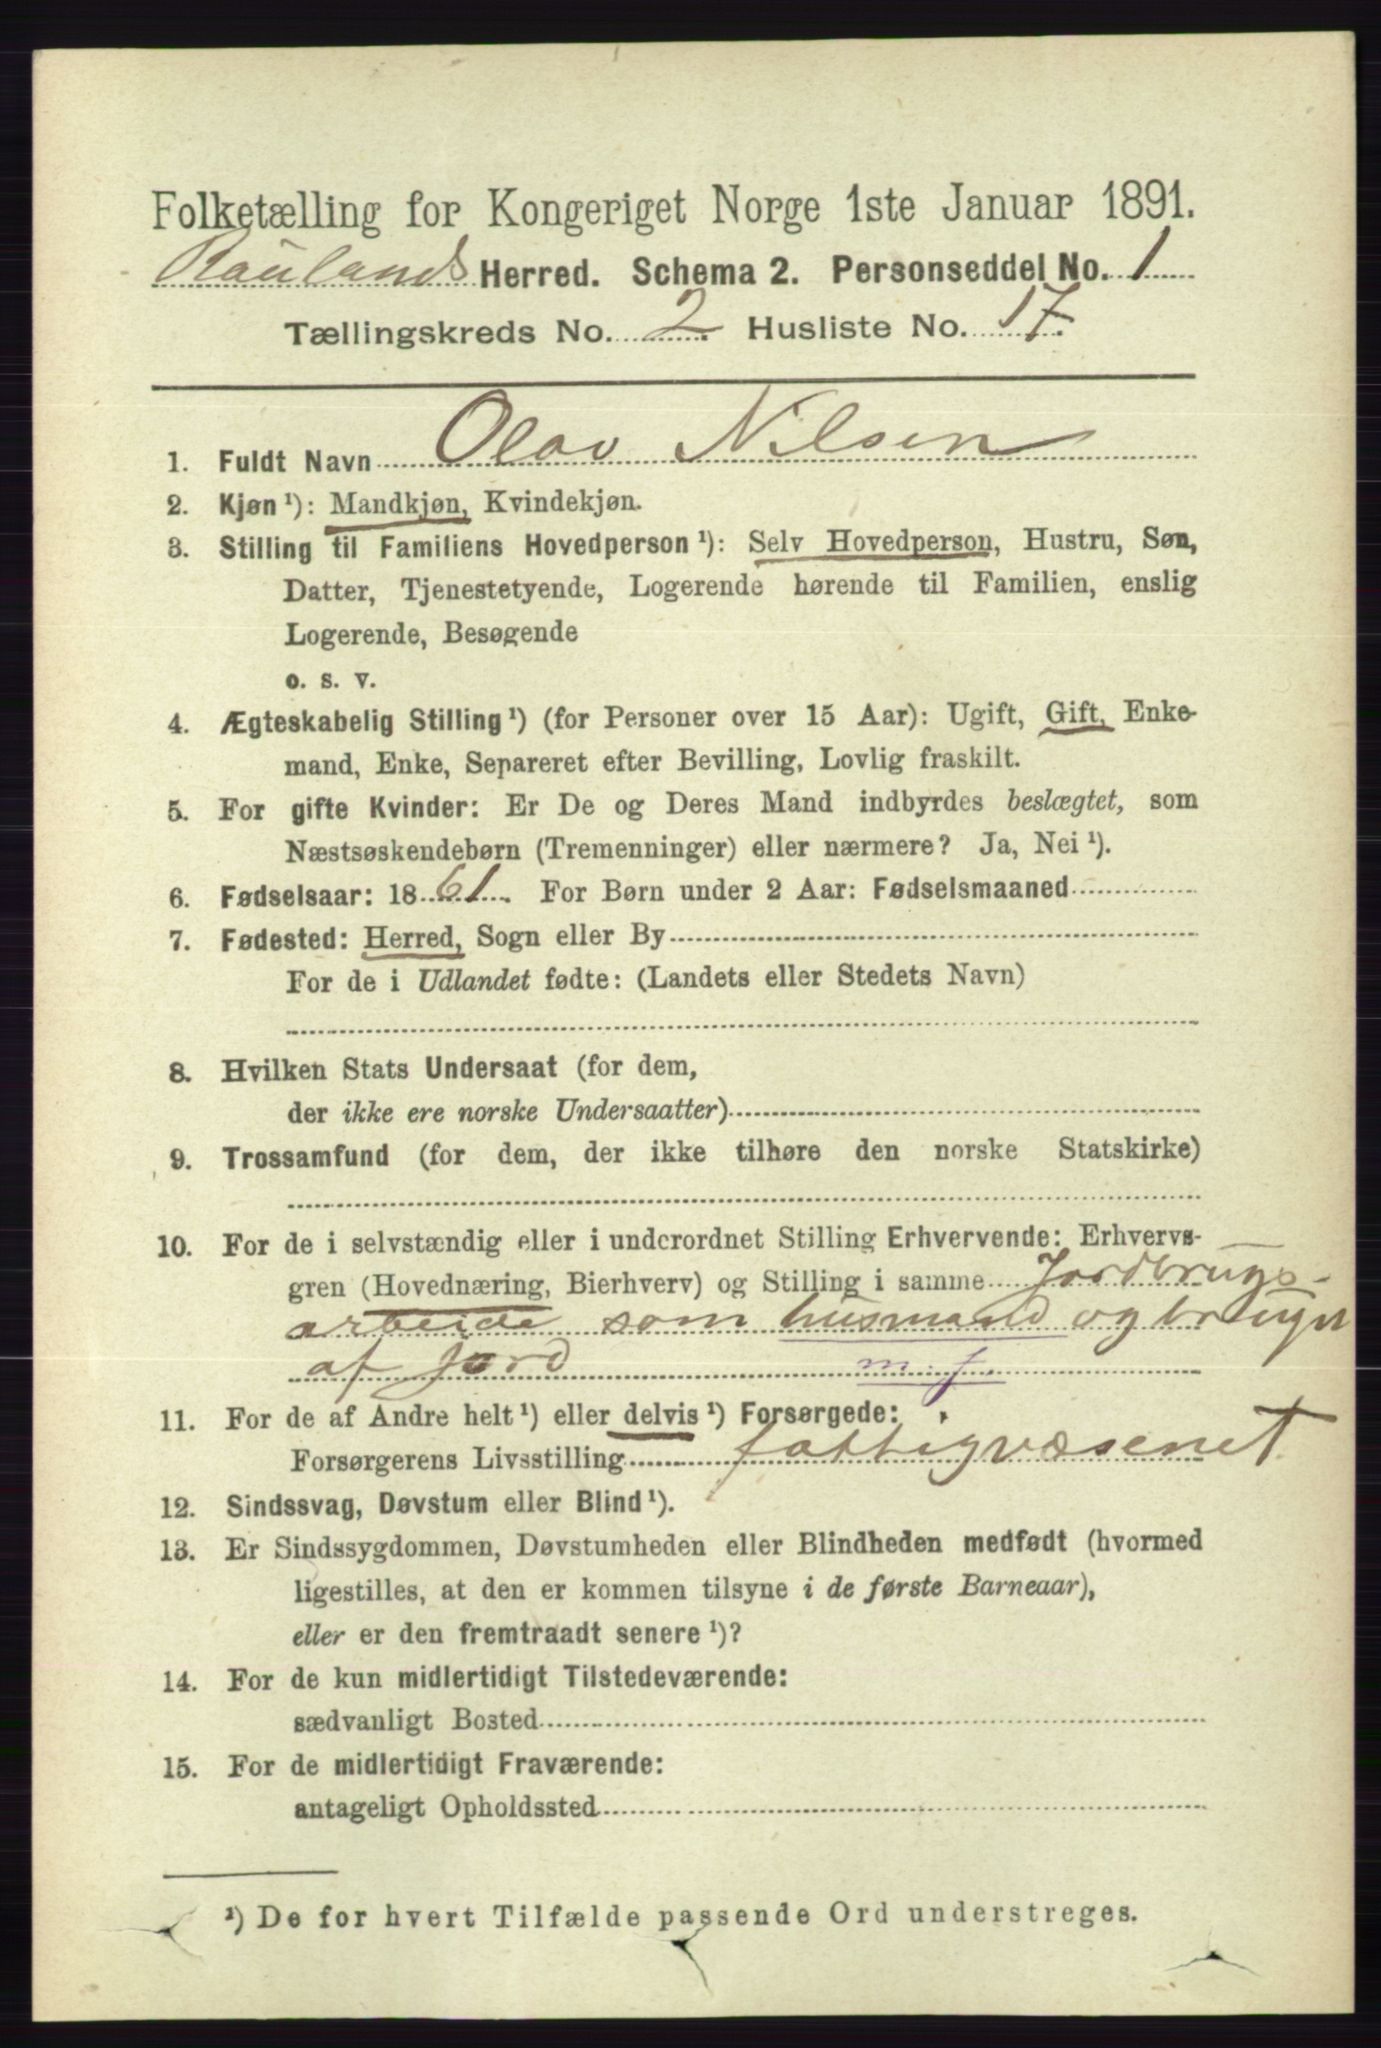 Folketælling for Kongeriget Norge 1ste Januar 1891.
Raulands Herred. Schema 2. Personseddel No. 1
Tællingskreds No. 2. Husliste No. 17.
1. Fuldt Navn Olav Nilsen
2. Kjøn ¹): Mandkjøn, Kvindekjøn.
3. Stilling til Familiens Hovedperson ¹): Selv Hovedperson, Hustru, Søn,
Datter, Tjenestetyende, Logerende hørende til Familien, enslig
Logerende, Besøgende
o. s. v.
4. Ægteskabelig Stilling ¹) (for Personer over 15 Aar): Ugift, Gift, Enke-
mand, Enke, Separeret efter Bevilling, Lovlig fraskilt.
5. For gifte Kvinder: Er De og Deres Mand indbyrdes beslægtet, som
Næstsøskendebørn (Tremenninger) eller nærmere? Ja, Nei ¹).
6. Fødselsaar: 1861. For Børn under 2 Aar: Fødselsmaaned
7. Fødested: Herred, Sogn eller By
For de i Udlandet fødte: (Landets eller Stedets Navn)
8. Hvilken Stats Undersaat (for dem,
der ikke ere norske Undersaatter)
9. Trossamfund (for dem, der ikke tilhøre den norske Statskirke)
10. For de i selvstændig eller i underordnet Stilling Erhvervende: Erhvervs-
gren (Hovednæring, Bierhverv) og Stilling i samme Jordbrugs-
arbeide som husmand og bruger
af Jord m. j.
11. For de af Andre helt ¹) eller delvis ¹) Forsørgede:
Forsørgerens Livsstilling fattigvæsenet
12. Sindssvag, Døvstum eller Blind ¹).
13. Er Sindssygdommen, Døvstumheden eller Blindheden medfødt (hvormed
ligestilles, at den er kommen tilsyne i de første Barneaar),
eller er den fremtraadt senere ¹)?
14. For de kun midlertidigt Tilstedeværende:
sædvanligt Bosted
15. For de midlertidigt Fraværende:
antageligt Opholdssted
¹) De for hvert Tilfælde passende Ord understreges.